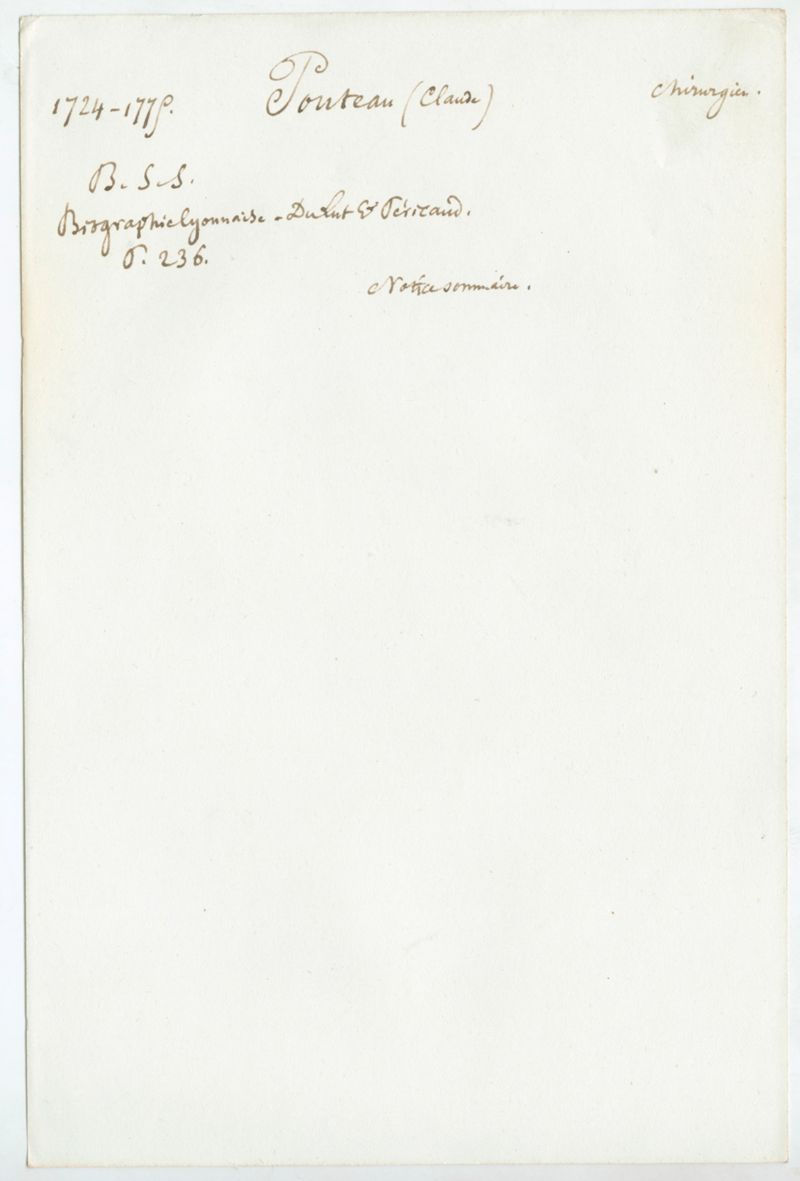 1724-1775. Pouteau (Claude) chirurgien.
B. S. S.
Biographie lyonnaise - Du Lut & Péricaud.
P. 236.
Notice sommaire.